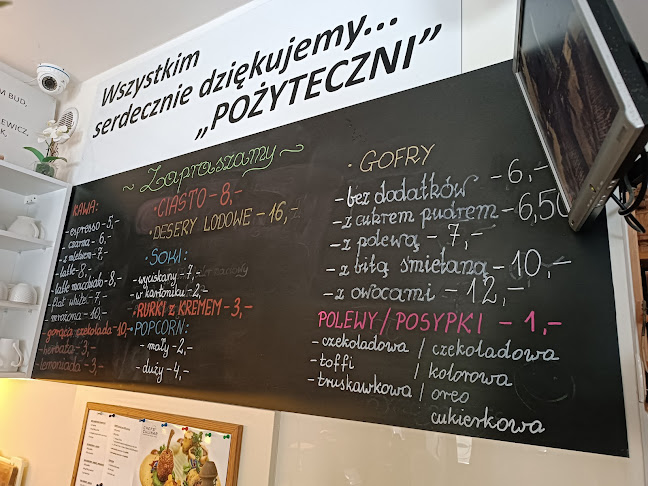 Wszystkim
serdecznie dziękujemy...
„POŻYTECZNI”
M BUD,
EWICZ,
K,
~ Zapraszamy ~
KAWA:
- espresso - 5,-
- czarna - 6,-
- z mlekiem - 7,-
- latte - 8,-
- latte macchiato - 8,-
- flat white - 7,-
- mrożona - 10,-
- gorąca czekolada - 10,-
- herbata - 3,-
- lemoniada - 3,-
• CIASTO - 8,-
• DESERY LODOWE - 16,-
• SOKI:
- wyciskany - 7,-
- w kartoniku - 2,-
• RURKI z KREMEM - 3,-
POPCORN:
- mały - 2,-
- duży - 4,-
• GOFRY
- bez dodatków - 6,-
- z cukrem pudrem - 6,50
- z polewą - 7,-
- z bitą śmietaną - 10,-
- z owocami - 12,-
POLEWY / POSYPKI - 1,-
- czekoladowa / czekoladowa
- toffi / kolorowa
- truskawkowa / oreo
cukierkowa